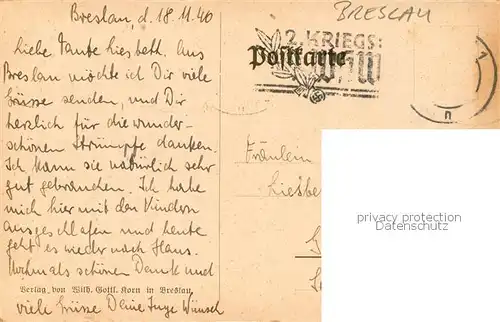 Breslau, d. 18.11.40
Liebe Tante Liesbeth. Aus
Breslau möchte ich Dir viele
Grüsse senden, und Dir
herzlich für die wunder-
schönen Strümpfe danken.
Ich kann sie natürlich sehr
gut gebrauchen. Ich habe
mich hier mit den Kindern
ausgeschlafen und heute
geht es wieder nach Haus.
Nochmals schönen Dank und
Verlag von Wilh. Gottl. Korn in Breslau.
viele Grüsse Deine Inge Wünsch
BRESLAU
2. KRIEGS:
WHW
Postkarte
Fräulein
Liesbe
privacy protection
Datenschutz